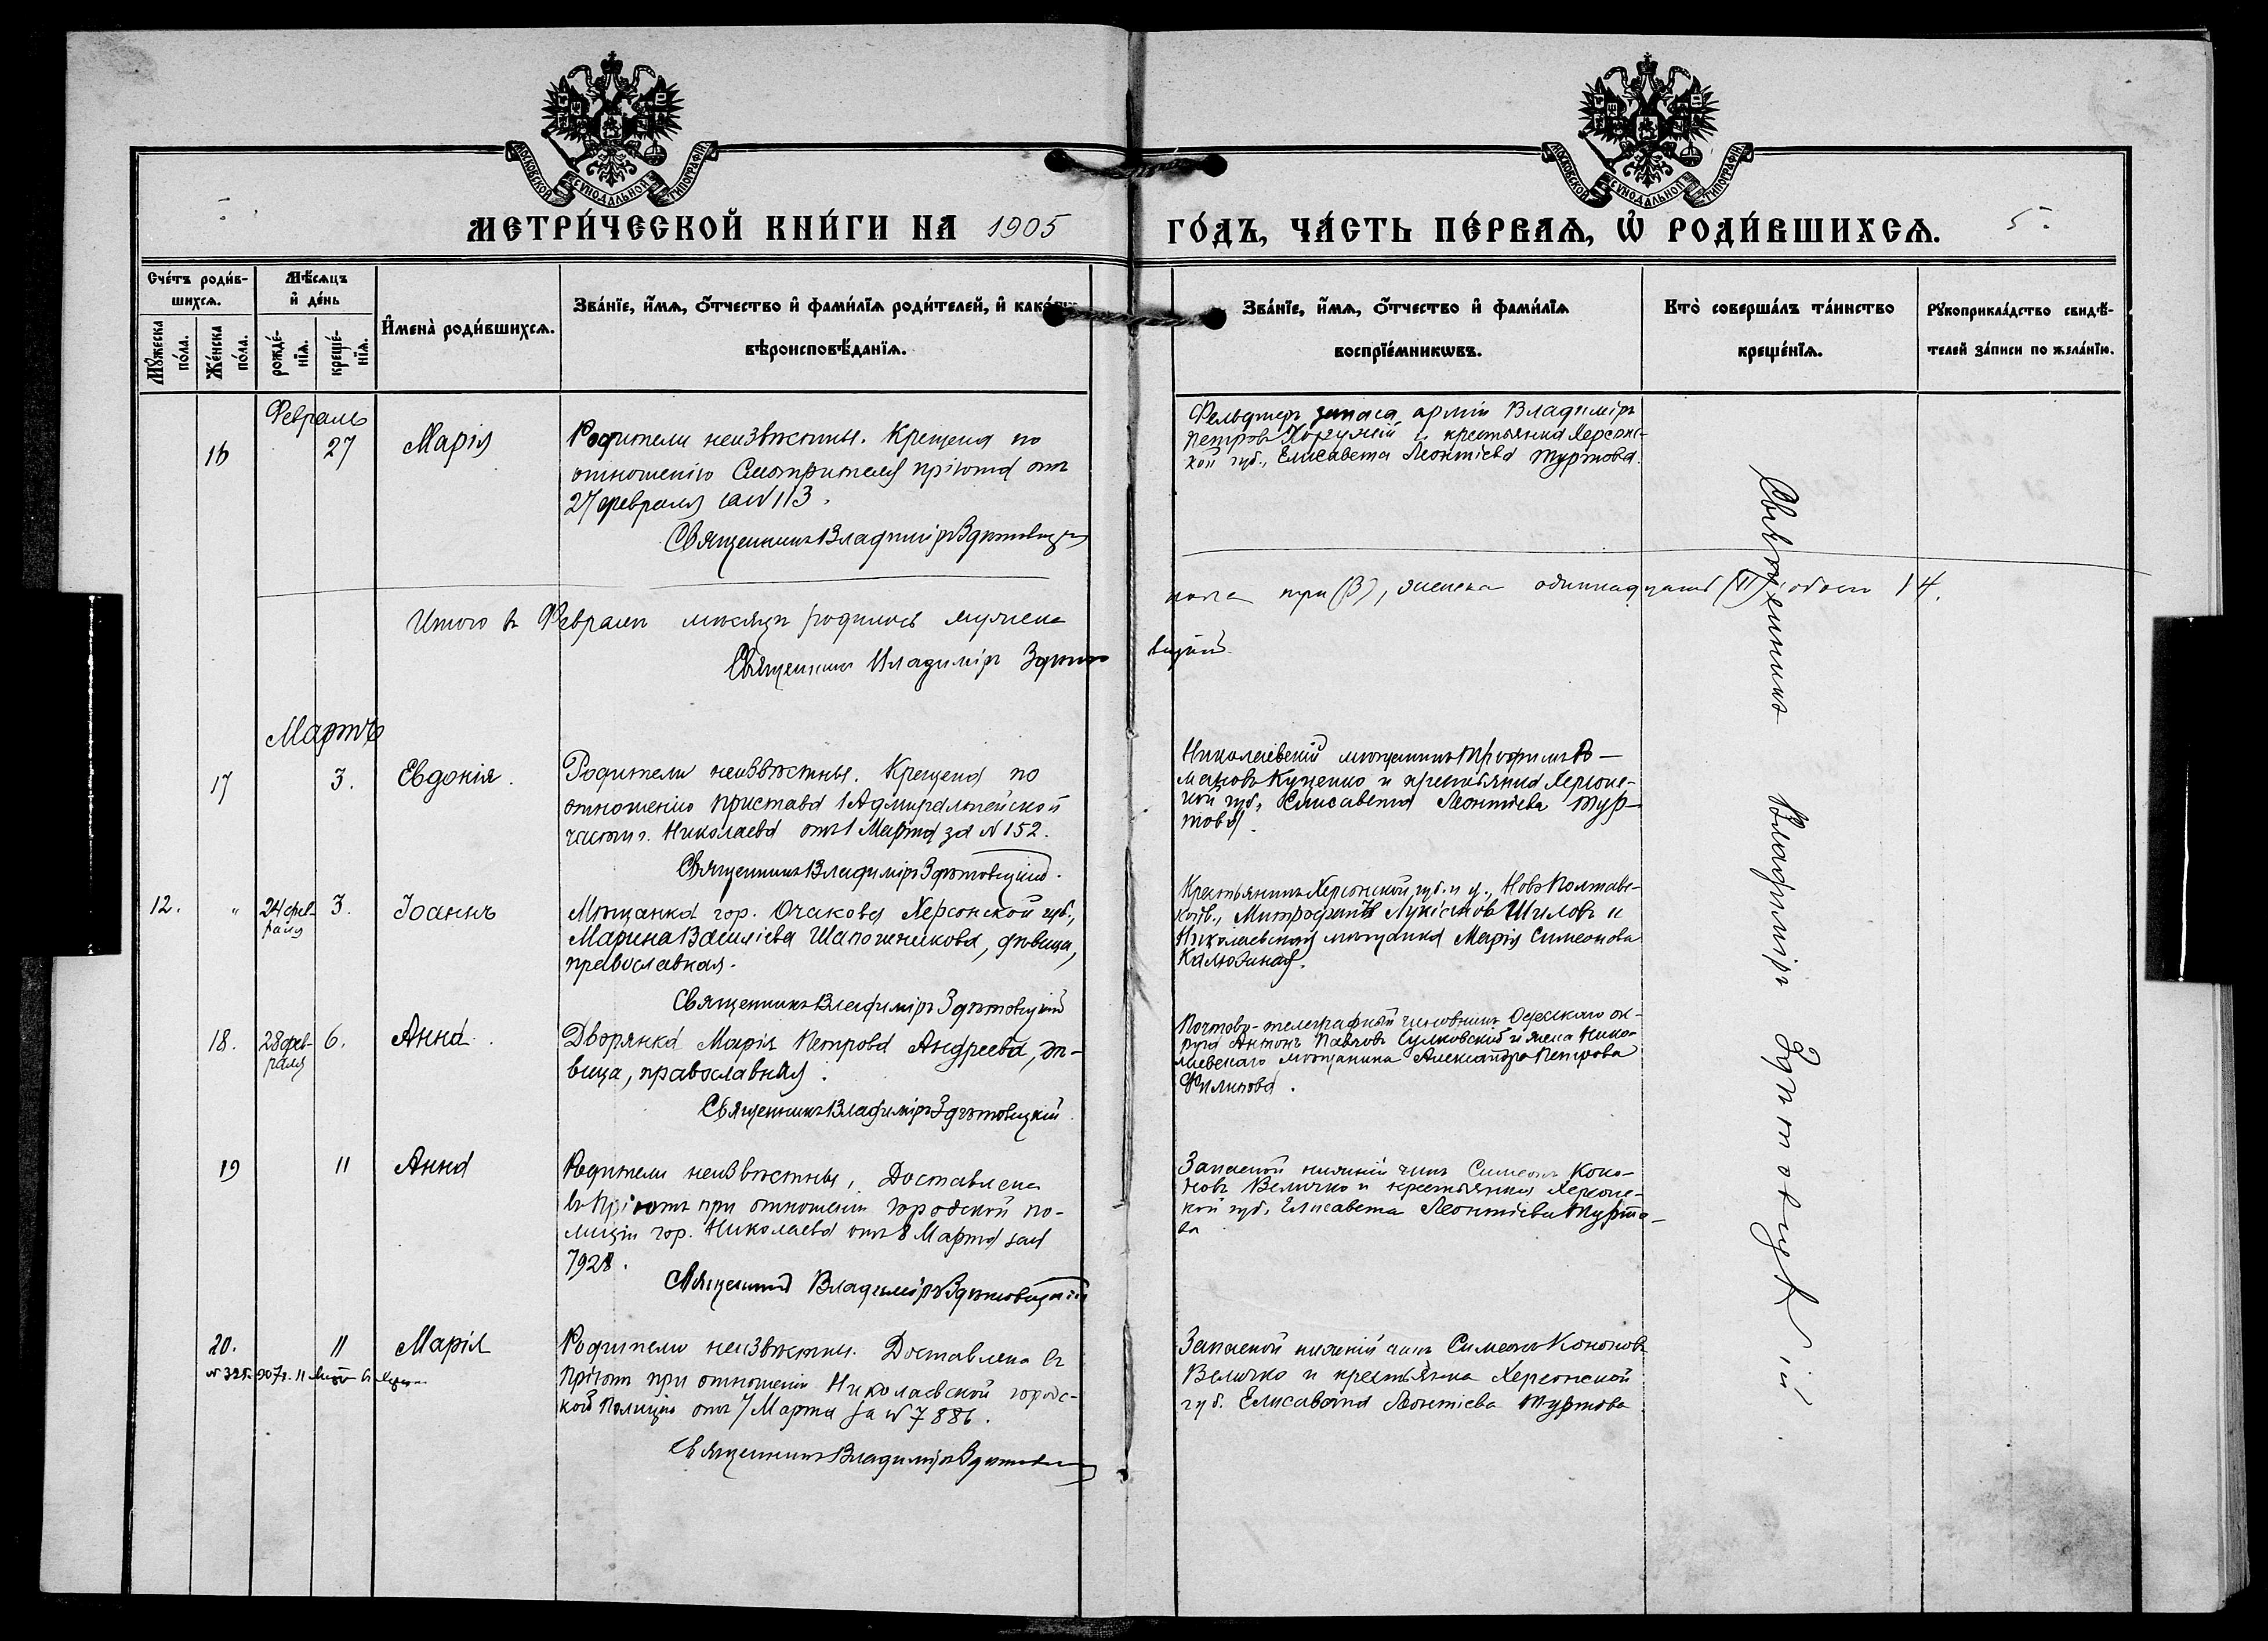 МОСКОВСКОЙ СѴНОДАЛЬНОЙ ТИПОГРАФІИ
МОСКОВСКОЙ СѴНОДАЛЬНОЙ ТИПОГРАФІИ
МЕТРИ́ЧЕСКОЙ КНИ́ГИ НА 1905
ГО́ДЪ, ЧА́СТЬ ПЕ́РВАѦ, Ѡ҆ РОДИ́ВШИХСѦ. 5.
Сче́тъ роди́в-
шихсѧ.
Мꙋ́жеска
по́ла.
Же́нска
по́ла.
Мѣ́сѧцъ
и҆ де́нь
рожде́-
нїѧ.
креще́-
нїѧ.
И҆мена̀ роди́вшихсѧ.
Зва́нїе, и҆́мѧ, ѻ҆́тчество и҆ фами́лїѧ роди́телей, и҆
вѣроисповѣ́данїѧ.
Зва́нїе, и҆́мѧ, ѻ҆́тчество и҆ фами́лїѧ
воспрїе́мникѡвъ.
Кто̀ соверша́лъ та́инство
креще́нїѧ.
Рꙋкоприкла́дство свидѣ́-
телей за́писи по жела́нїю.
Февраль
16 27 Марія
Родители неизвѣстны. Крещена по
отношенію Смотрителя пріюта отъ
27 февраля за № 113.
Священникъ Владиміръ Здѣтовецкій
Фельдшеръ запаса арміи Владиміръ
Петровъ и крестьянка Херсонс-
кой губ., Елисавета Леонтіева Туртова.
Итого въ Февралѣ мѣсяцѣ родилось мужеска
пола три (3), женска одиннадцать (11) обоего 14.
Священникъ Владиміръ Здѣто
вецкій.
Мартъ
17 3. Евдокія.
Родители неизвѣстны. Крещена по
отношенію Пристава 1 Адмиралтейской
части г. Николаева отъ 1 Марта за № 152.
Священникъ Владиміръ Здѣтовецкій.
Николаевскій мѣщанинъ Трофимъ Ро-
мановъ Куценко и крестьянка Херсонс-
кой губ. Елисавета Леонтіева Тур-
това.
12. " 24 фев-
раля 3. Іоаннъ
Мѣщанка гор. Очакова Херсонской губ.,
Марина Василіева Шапошникова, дѣвица,
православная.
Священникъ Владиміръ Здѣтовецкій
Крестьянинъ Херсонской губ. и у., Ново Полтавс-
кой в., Митрофанъ Лукіановъ Шиловъ и
Николаевская мѣщанка Марія Симеонова
Калюжная.
18. 28 фев-
раля 6. Анна.
Дворянка Марія Петрова Андреева, дѣ-
вица, православная.
Священникъ Владиміръ Здѣтовецкій.
Почтово-телеграфный чиновникъ Одесскаго ок-
руга Антонъ Павловъ Сулковскій и жена Нико-
лаевскаго мѣщанина Александра Петрова
Филипова.
19 11 Анна
Родители неизвѣстны, Доставлена
въ Пріютъ при отношеніи городской по-
лиціи гор. Николаева отъ 8 Марта за №
7928.
Священникъ Владиміръ Здѣтовецкій
Запасной нижній чинъ Симеонъ Коно-
новъ Величко и крестьянка Херсонс-
кой губ. Елисавета Леонтіева Турто-
ва
20. 11 Марія
№ 325. 907 г. 11
Родители неизвѣстны. Доставлена въ
Пріютъ при отношеніи Николаевской городс-
кой Полиціи отъ 7 Марта за № 7886.
Священникъ Владиміръ Здѣтовецкій
Запасной нижній чинъ Симеонъ Кононовъ
Величко и крестьянка Херсонской
губ. Елисавета Леонтіева Туртова.
Священникъ Владиміръ Здѣтовецкій.